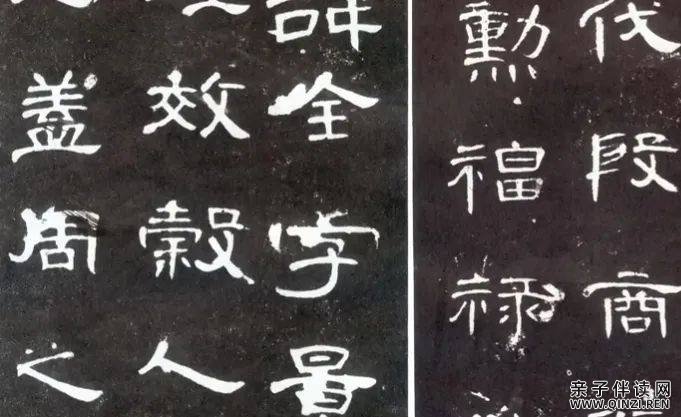 諱全字景
效穀人
盖周之
伐殷商
勳福祿
亲子伴读网
WWW.QINZI.REN